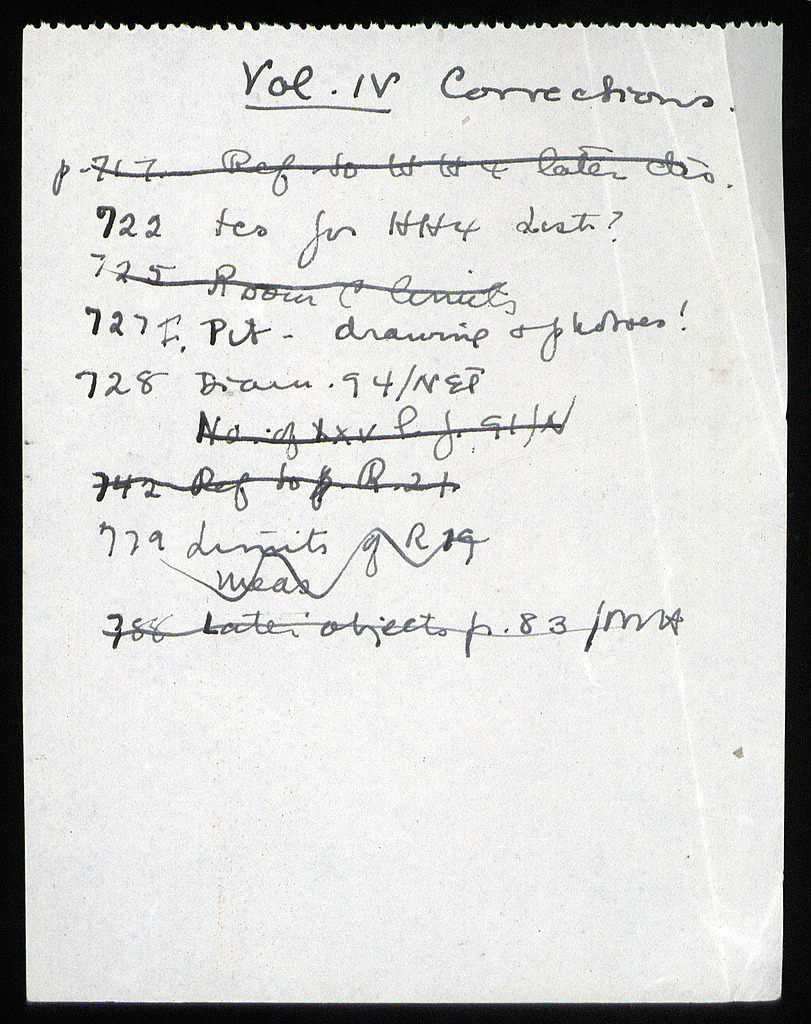 Vol. IV Corrections.
p. 717. Ref to HH4 later
722 for HH4 dist?
725 Room C limits
727 F. Pit - drawing & photoes!
728 Diam. 94/NET
No. of 91/N
742 Ref to p. R.21.
779 Limits of R 19
meas
788 Later objects p. 83/